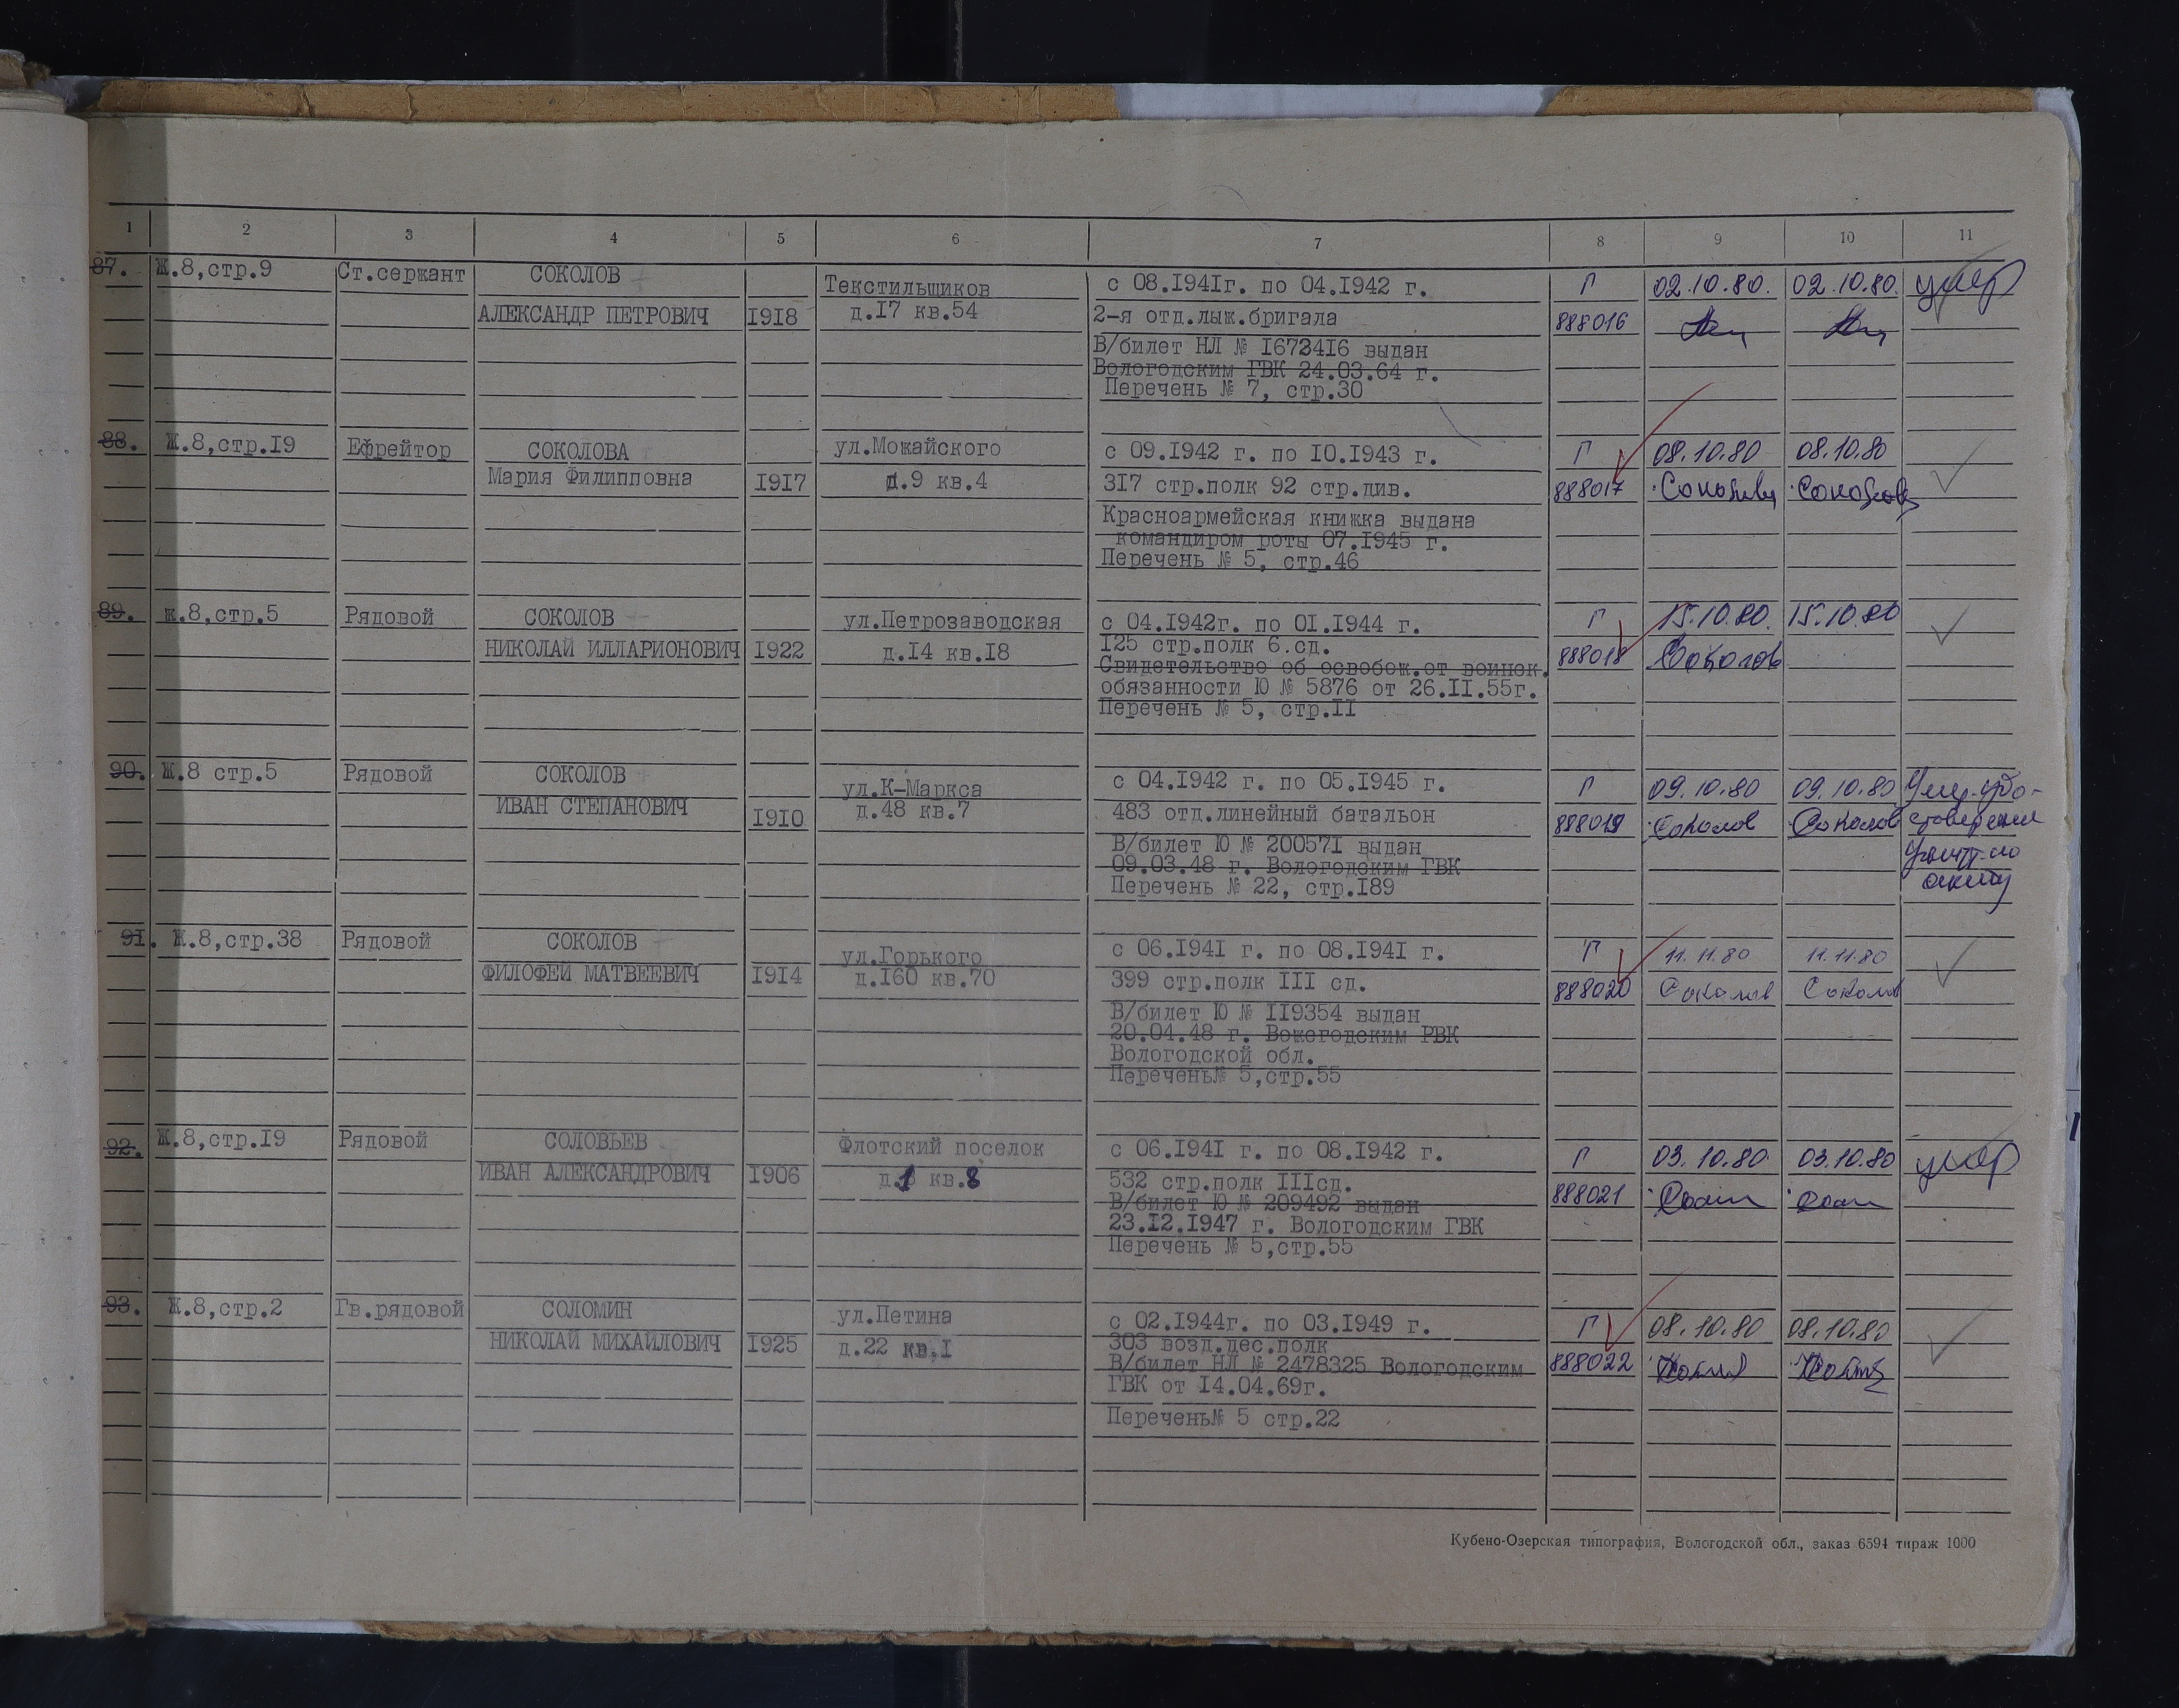 1 2 3 4 5 6 7 8 9 10 11
87. Ж.8,стр.9 Ст.сержант СОКОЛОВ Текстильщиков с 08.I94Iг. по 04.I942 г. Г 02.10.80. 02.10.80. умер
АЛЕКСАНДР ПЕТРОВИЧ I9I8 д.I7 кв.54 2-я отд.лыж.бригала 888016
В/билет НЛ № I672416 выдан
Вологодским ГВК 24.03.64 г.
Перечень № 7, стр.30
88. Ж.8,стр.I9 Ефрейтор СОКОЛОВА ул.Можайского с 09.I942 г. по I0.I943 г. Г 08.10.80 08.10.80
Мария Филипповна I9I7 д.9 кв.4 3I7 стр.полк 92 стр.див. 888017
Красноармейская книжка выдана
командиром роты 07.I945 г.
Перечень № 5, стр.46
89. ж.8,стр.5 Рядовой СОКОЛОВ ул.Петрозаводская с 04.I942г. по 0I.I944 г. Г 15.10.80. 15.10.80
НИКОЛАЙ ИЛЛАРИОНОВИЧ I922 д.I4 кв.I8 I25 стр.полк 6.сд. 888018 Соколов
Свидетельство об освобож.от воинск.
обязанности Ю № 5876 от 26.II.55г.
Перечень № 5, стр.II
90. Ж.8 стр.5 Рядовой СОКОЛОВ ул.К-Маркса с 04.I942 г. по 05.I945 г. Г 09.10.80 09.10.80
ИВАН СТЕПАНОВИЧ I9I0 д.48 кв.7 483 отд.линейный батальон 888019 Соколов Соколов
В/билет Ю № 20057I выдан
09.03.48 г. Вологодским ГВК
Перечень № 22, стр.I89
акту
9I. Ж.8,стр.38 Рядовой СОКОЛОВ ул.Горького с 06.I94I г. по 08.I94I г. Г 11.11.80 11.11.80
ФИЛОФЕЙ МАТВЕЕВИЧ I9I4 д.I60 кв.70 399 стр.полк III сд. 888020 Соколов Соколов
В/билет Ю № II9354 выдан
20.04.48 г. Вожегодским РВК
Вологодской обл.
Перечень№ 5,стр.55
92. Ж.8,стр.I9 Рядовой СОЛОВЬЕВ Флотский поселок с 06.I94I г. по 08.I942 г. Г 03.10.80 03.10.80 умер
ИВАН АЛЕКСАНДРОВИЧ I906 д.1 кв.8 532 стр.полк IIIсд. 888021
В/билет Ю № 209492 выдан
23.I2.I947 г. Вологодским ГВК
Перечень № 5,стр.55
93. Ж.8,стр.2 Гв.рядовой СОЛОМИН ул.Петина с 02.I944г. по 03.I949 г. Г 08.10.80 08.10.80
НИКОЛАЙ МИХАЙЛОВИЧ I925 д.22 кв.I 303 возд.дес.полк 888022
В/билет НЛ № 2478325 Вологодским
ГВК от I4.04.69г.
Перечень№ 5 стр.22
Кубено-Озерская типография, Вологодской обл., заказ 6594 тираж 1000